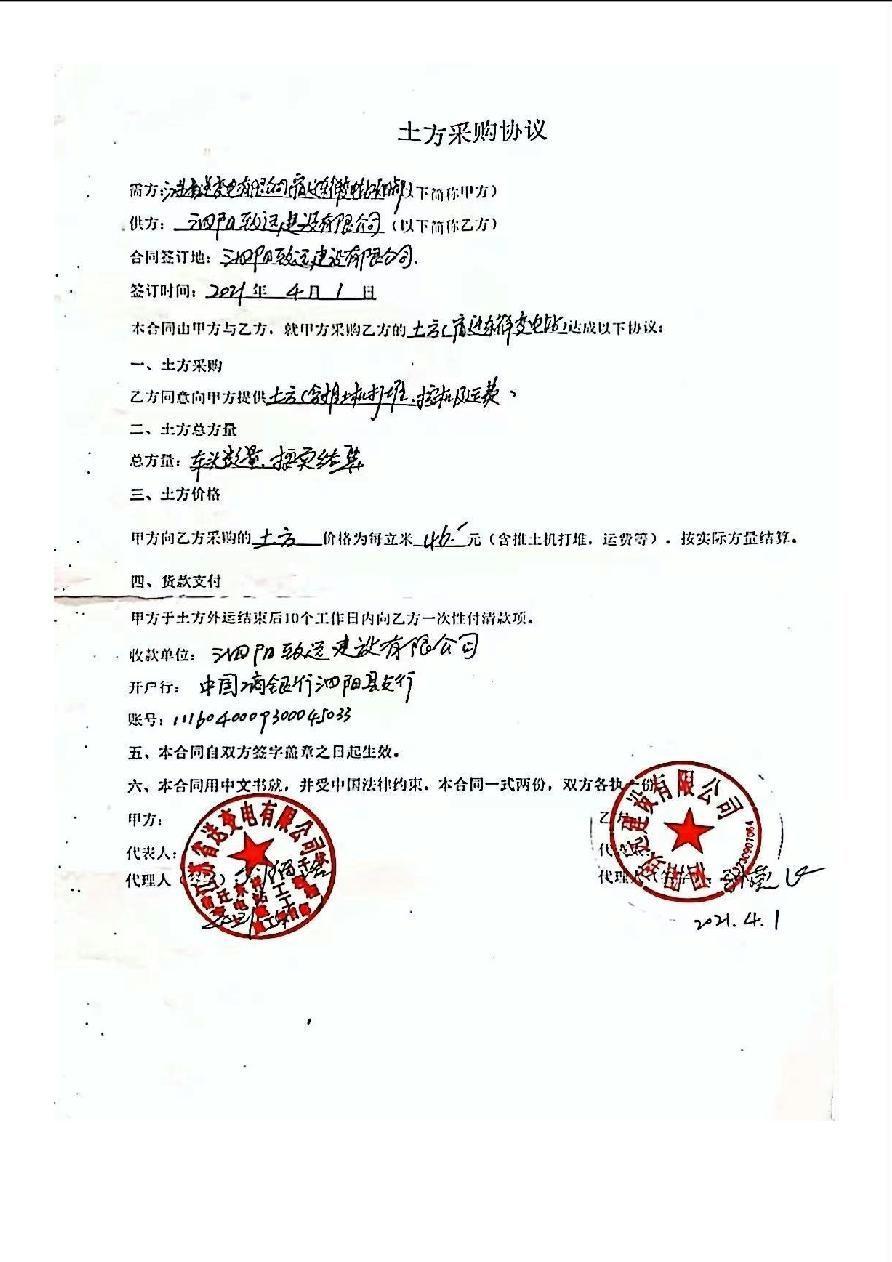 土方采购协议
需方:江苏省送变电有限公司宿迁东(以下简称甲方)
供方:泗阳致远建设有限公司(以下简称乙方)
合同签订地:泗阳致远建设有限公司.
签订时间:2021年4月1日
本合同由甲方与乙方,就甲方采购乙方的土方(宿迁东 变电站)达成以下协议:
一、土方采购
乙方同意向甲方提供土方(含推土机打堆、挖机及运费、
二、土方总方量
总方量:车头数量.按实结算
三、土方价格
甲方向乙方采购的土方价格为每立米46.5元(含推土机打堆,运费等),按实际方量结算。
四、货款支付
甲方于土方外运结束后10个工作日内向乙方一次性付清款项。
收款单位:泗阳致远建设有限公司
开户行:中国 银行泗阳县支行
账号:1116040009300045033
五、本合同自双方签字盖章之日起生效。
六、本合同用中文书就,并受中国法律约束,本合同一式两份,双方各执 份
甲方:
乙
代表人:
代
代理人
代理人
江苏省送变电有限公司
泗阳致远建设有限公司
2021.4.1